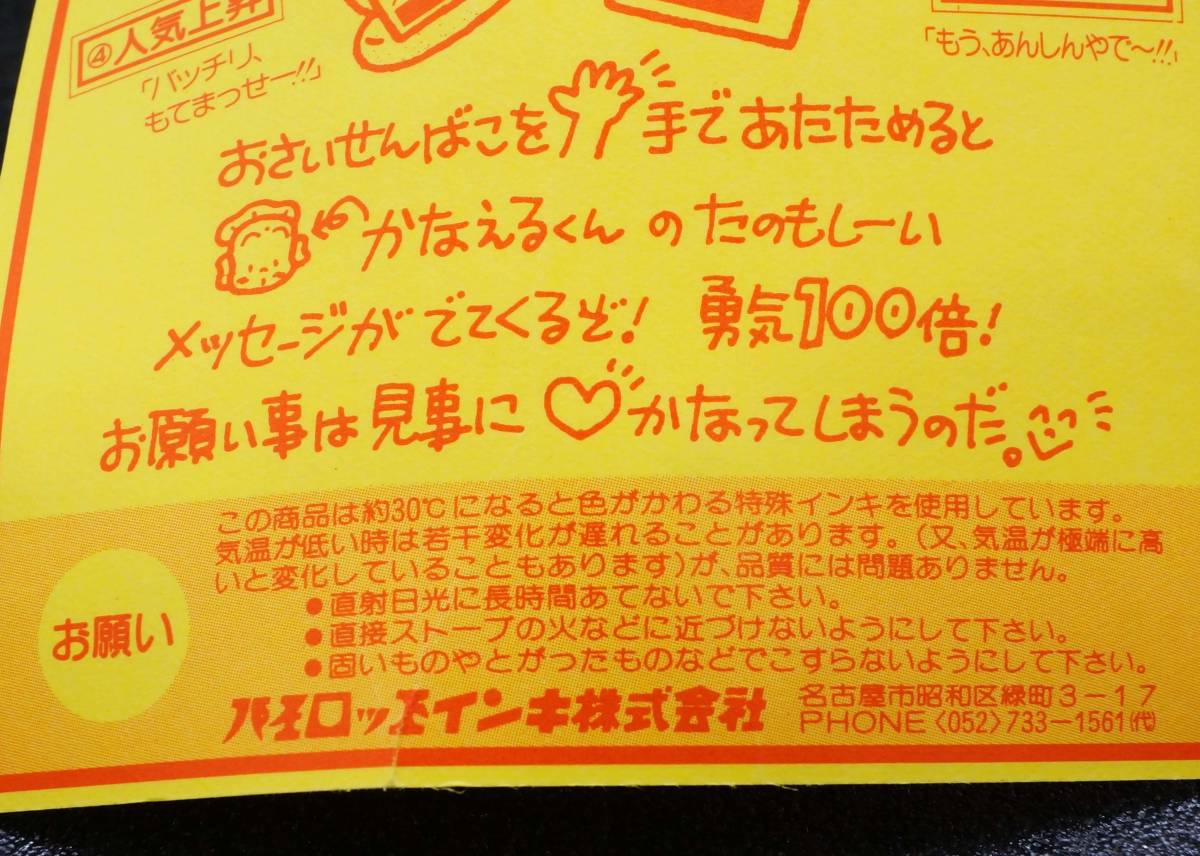 ④人気上昇
「バッチリ、
もてまっせー!!」
「もう、あんしんやで〜!!」
おさいせんばこを手であたためると
かなえるくんのたのもしーい
メッセージがでてくるぞ! 勇気100倍!
お願い事は見事に♡かなってしまうのだ。
この商品は約30℃になると色がかわる特殊インキを使用しています。
気温が低い時は若干変化が遅れることがあります。(又、気温が極端に高
いと変化していることもあります)が、品質には問題ありません。
●直射日光に長時間あてないで下さい。
●直接ストーブの火などに近づけないようにして下さい。
●固いものやとがったものなどでこすらないようにして下さい。
お願い
パイロットインキ株式会社
名古屋市昭和区緑町3-17
PHONE〈052〉733-1561㈹